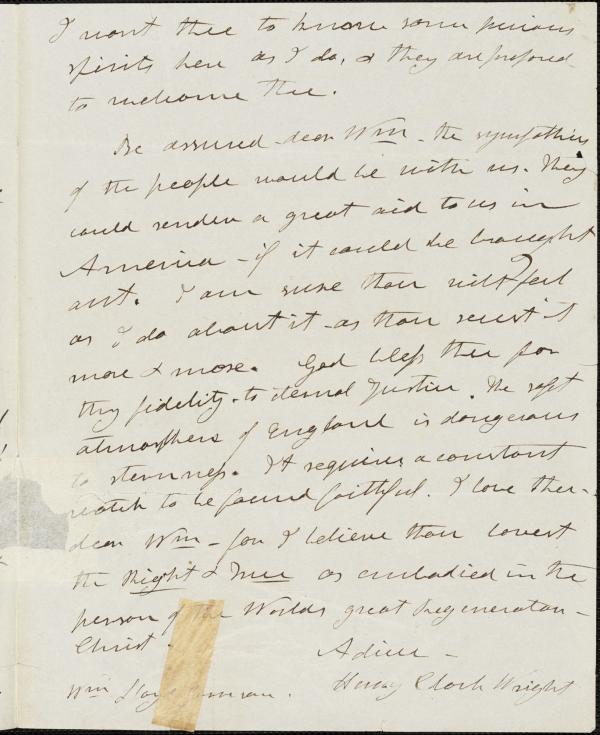 I want thee to know some precious
spirits here as I do, & they are prepared
to welcome thee.
Be assured dear Wm - the sympathies
of the people would be with us. They
could render a great aid to us in
America - if it could be brought
out. I am sure thou wilt feel
as I do about it - as thou seest it
more & more. God bless thee for
thy fidelity to eternal Justice. The soft
atmosphere of England is dangerous
to sternness. It requires a constant
watch to be found faithful. I love thee -
dear Wm - for I believe thou lovest
the Right & True as embodied in the
person of the Worlds great Regenerator -
Christ -
Adieu -
Henry Clark Wright
Wm Lloyd